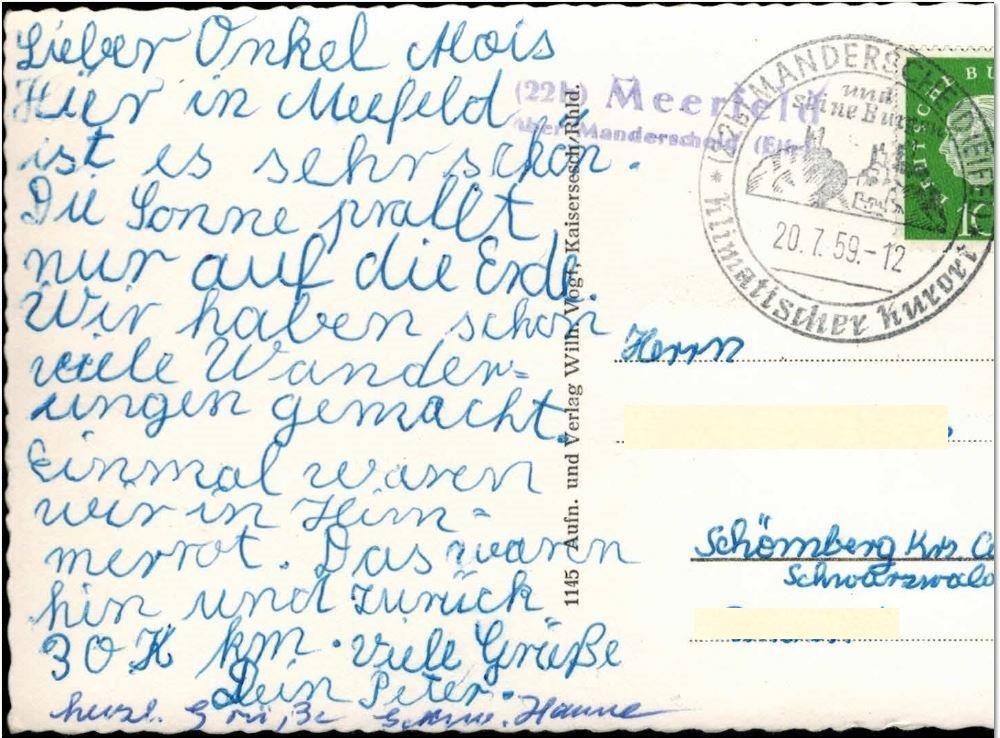 Lieber Onkel Alois
Hier in Meefeld
ist es sehr schön.
Die Sonne prallt
nur auf die Erde.
Wir haben schon
viele Wander=
ungen gemacht.
Einmal waren
wir in Him=
merrot. Das waren
hin und zurück
30 K km. viele Grüße
Dein Peter.
herzl. Grüße Hanne
1145 Aufn. und Verlag Wilh. Vogt, Kaisersesch/Rhld.
(22b) Meerfeld
über Manderscheid (Eifel)
(22b) MANDERSCHEID (EIFEL)
und
seine Burgen
20.7.59.-12
* Klimatischer Kurort *
DEUTSCHE BU
Herrn
Schömberg Krs C
Schwarzwald